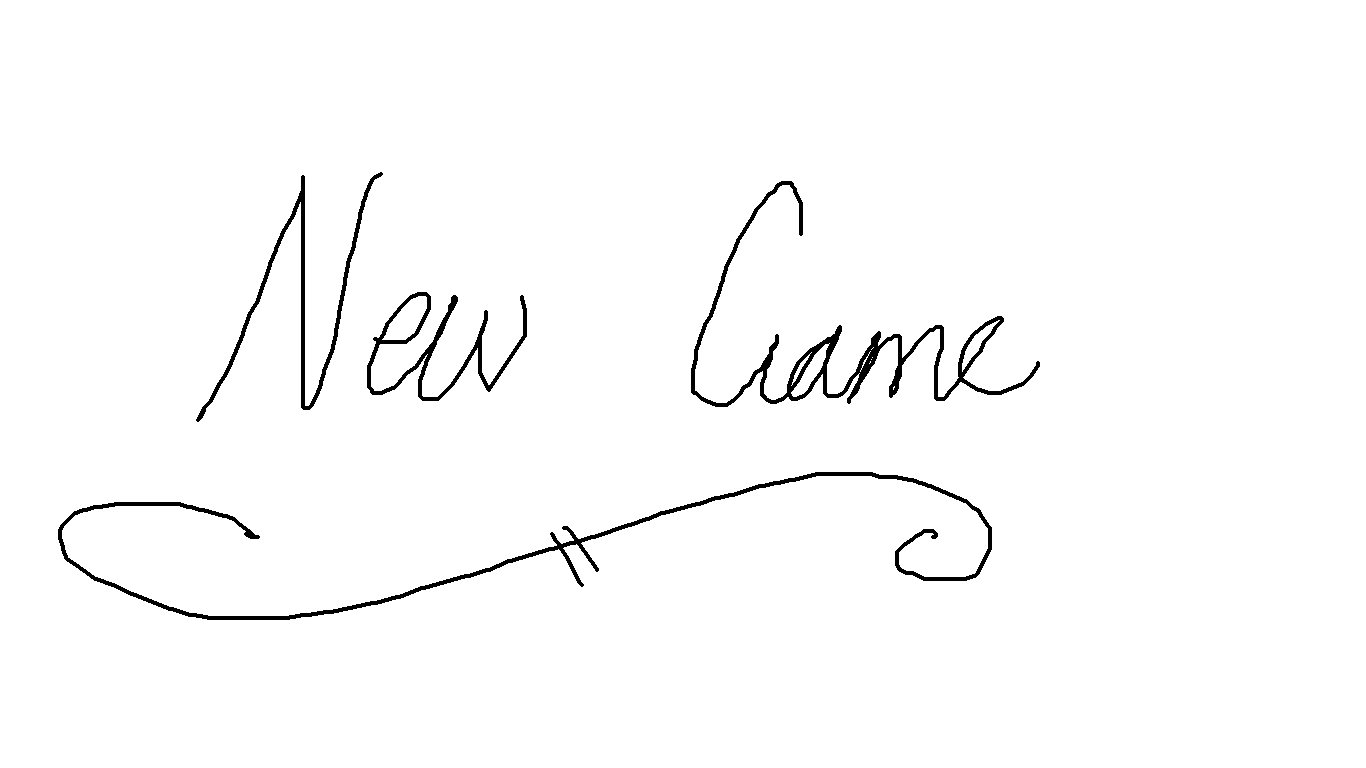 New Game